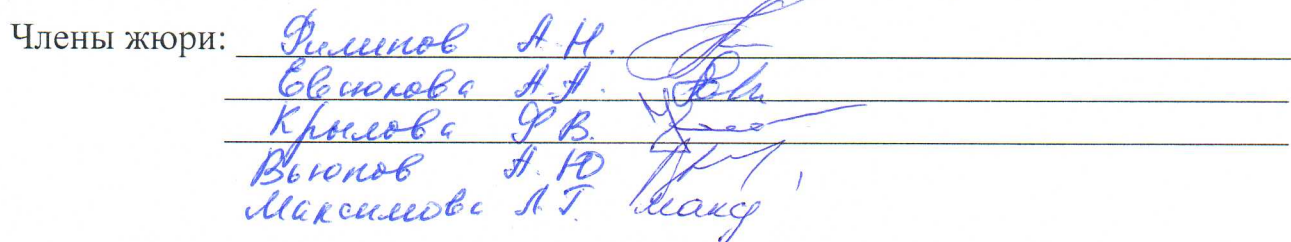 Члены жюри: Филипов А.Н.
Евсюкова А.А.
Крылова Ф В.
Вьюнов А. Ю
Максимова Л.Г.